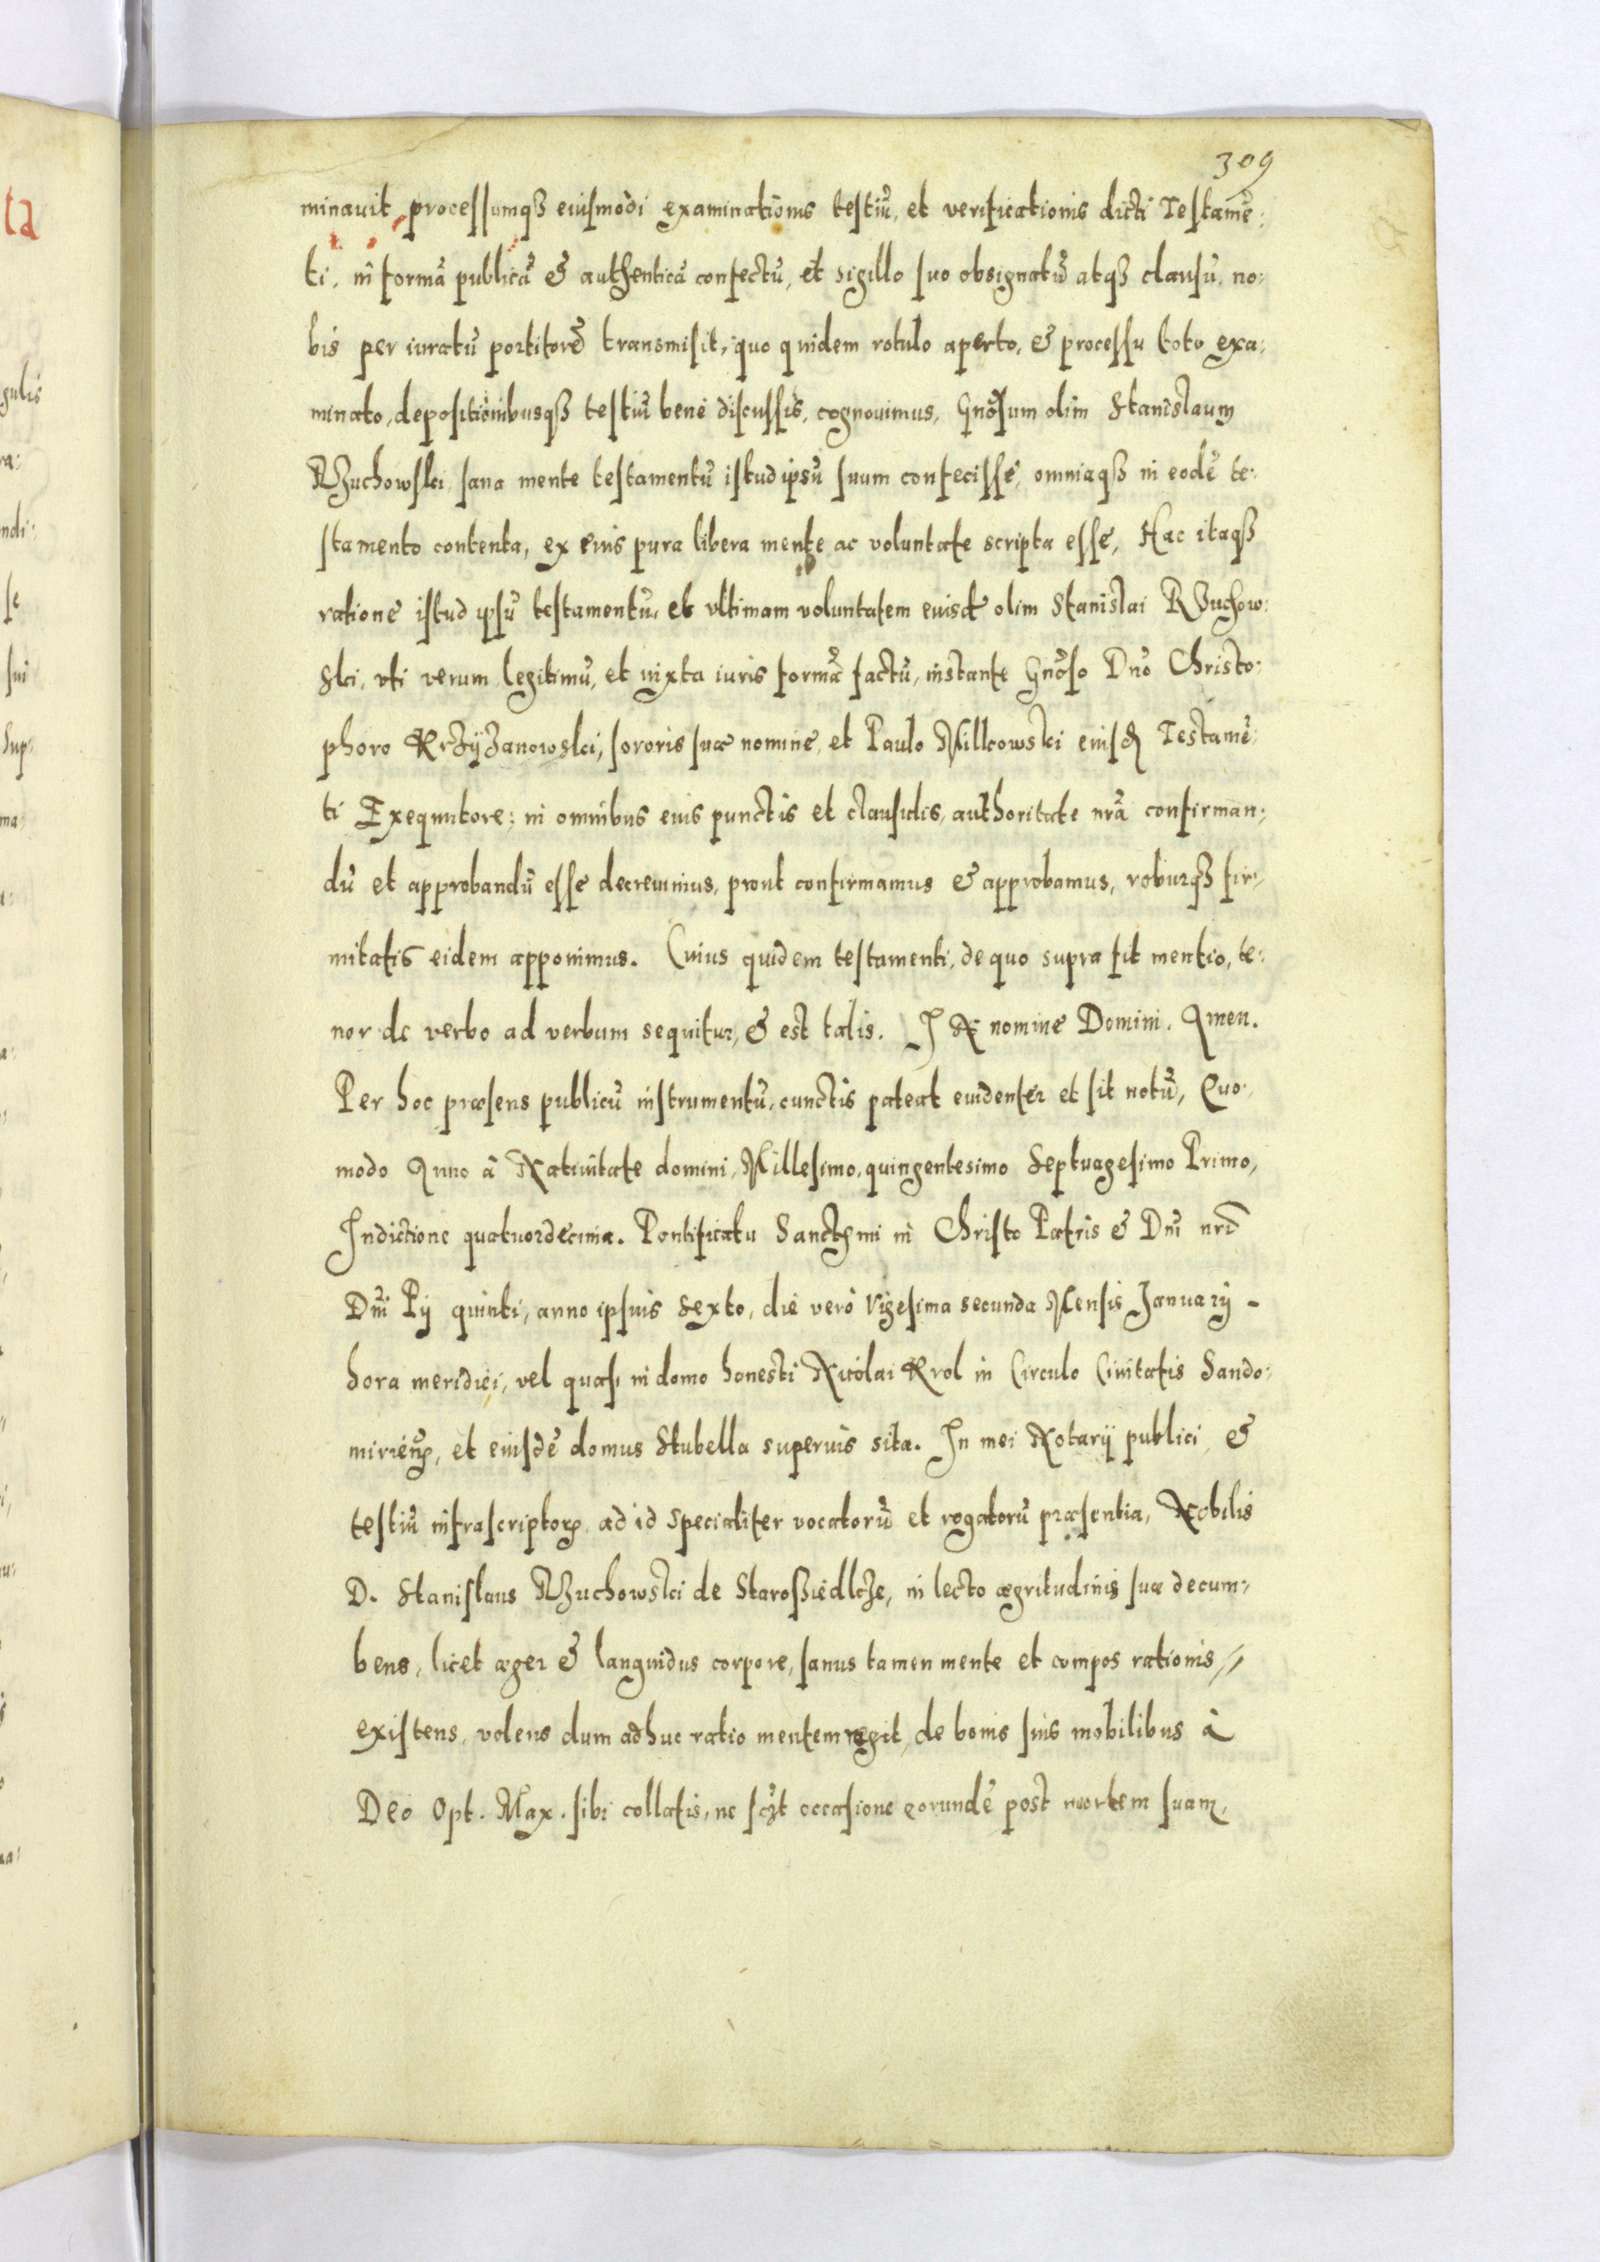 309
minauit processumqꝫ eiusmodi examinationis testiũ, et verificationis dicti Testamẽ:
ti, in formã publicã & authenticã confectũ, et sigillo suo obsignatũ atqꝫ clausũ, no:
bis per iuratũ portitorẽ transmisit, quo quidem rotulo aperto, & processu toto exa:
minato, depositionibusqꝫ testiũ bene discussis, cognouimus, Gnõsum olim Stanislaum
Rzuchowski sana mente testamentũ istud ipsũ suum confecisse, omniaqꝫ in eodẽ te:
stamento contenta, ex eius pura libera mente ac voluntate scripta esse, Hac itaqꝫ
ratione istud ipsũ testamentũ, et vltimam voluntatem eiusdẽ olim Stanislai Rzuchow:
ski, vti verum legitimũ, et iuxta iuris formã factũ, instante Gnõso Dño Christo:
phoro Krzyżanowski, sororis suæ nomine, et Paulo Milkowski eiusdẽ Testamẽ:
ti Exequutore; in omnibus eius punctis et clausulis, authoritate nrã confirman:
dũ et approbandũ esse decreuimus, prout confirmamus & approbamus, roburqꝫ fir:
mitatis eidem apponimus. Cuius quidem testamenti, de quo supra fit mentio, te:
nor de verbo ad verbum sequitur, & est talis. IN nomine Domini. Amen.
Per hoc præsens publicũ instrumentũ, cunctis pateat euidenter et sit notũ, Quo:
modo Anno à Natiuitate domini, Millesimo, quingentesimo Septuagesimo Primo,
Indictione quatuordecima. Pontificatu Sanctismi in Christo Patris & Dñi nrĩ
Dñi Pij quinti, anno ipsius sexto, die verò Vigesima secunda Mensis Januarij -
hora meridiei, vel quasi in domo honesti Nicolai Krol in Circulo Ciuitatis Sando:
mirieñ, et eiusdẽ domus Stubella superius sita. In mei Notarij publici &
testiũ infrascriptoꝝ ad id specialiter vocatorũ et rogatorũ præsentia, Nobilis
D. Stanislaus Rzuchowski de Staroßiedlcze, in lecto ægritudinis suæ decum:
bens, licet æger & languidus corpore, sanus tamen mente et compos rationis
existens, volens dum adhuc ratio mentem regit, de bonis suis mobilibus à
Deo Opt. Max. sibi collatis, ne sczt occasione eorundẽ post mortem suam,